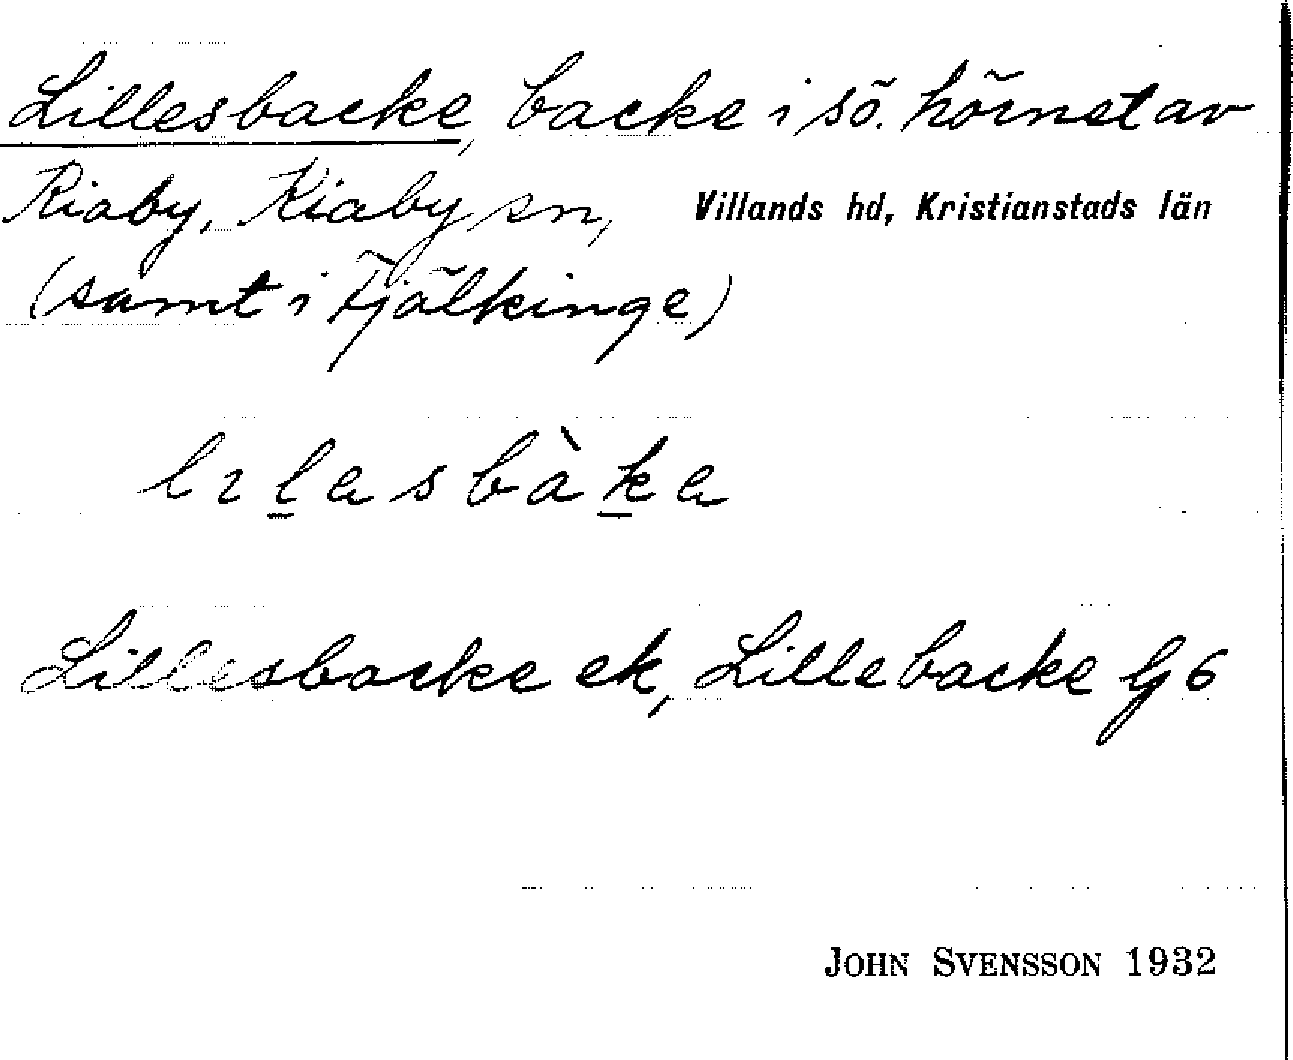 Lillesbacke, backe i sö. hörnet av
Riaby, Kiaby sn, Villands hd, Kristianstads län
(samt i Fjälkinge)
lılasbàka
Lillesbacke ek, Lillebacke G6
JOHN SVENSSON 1932